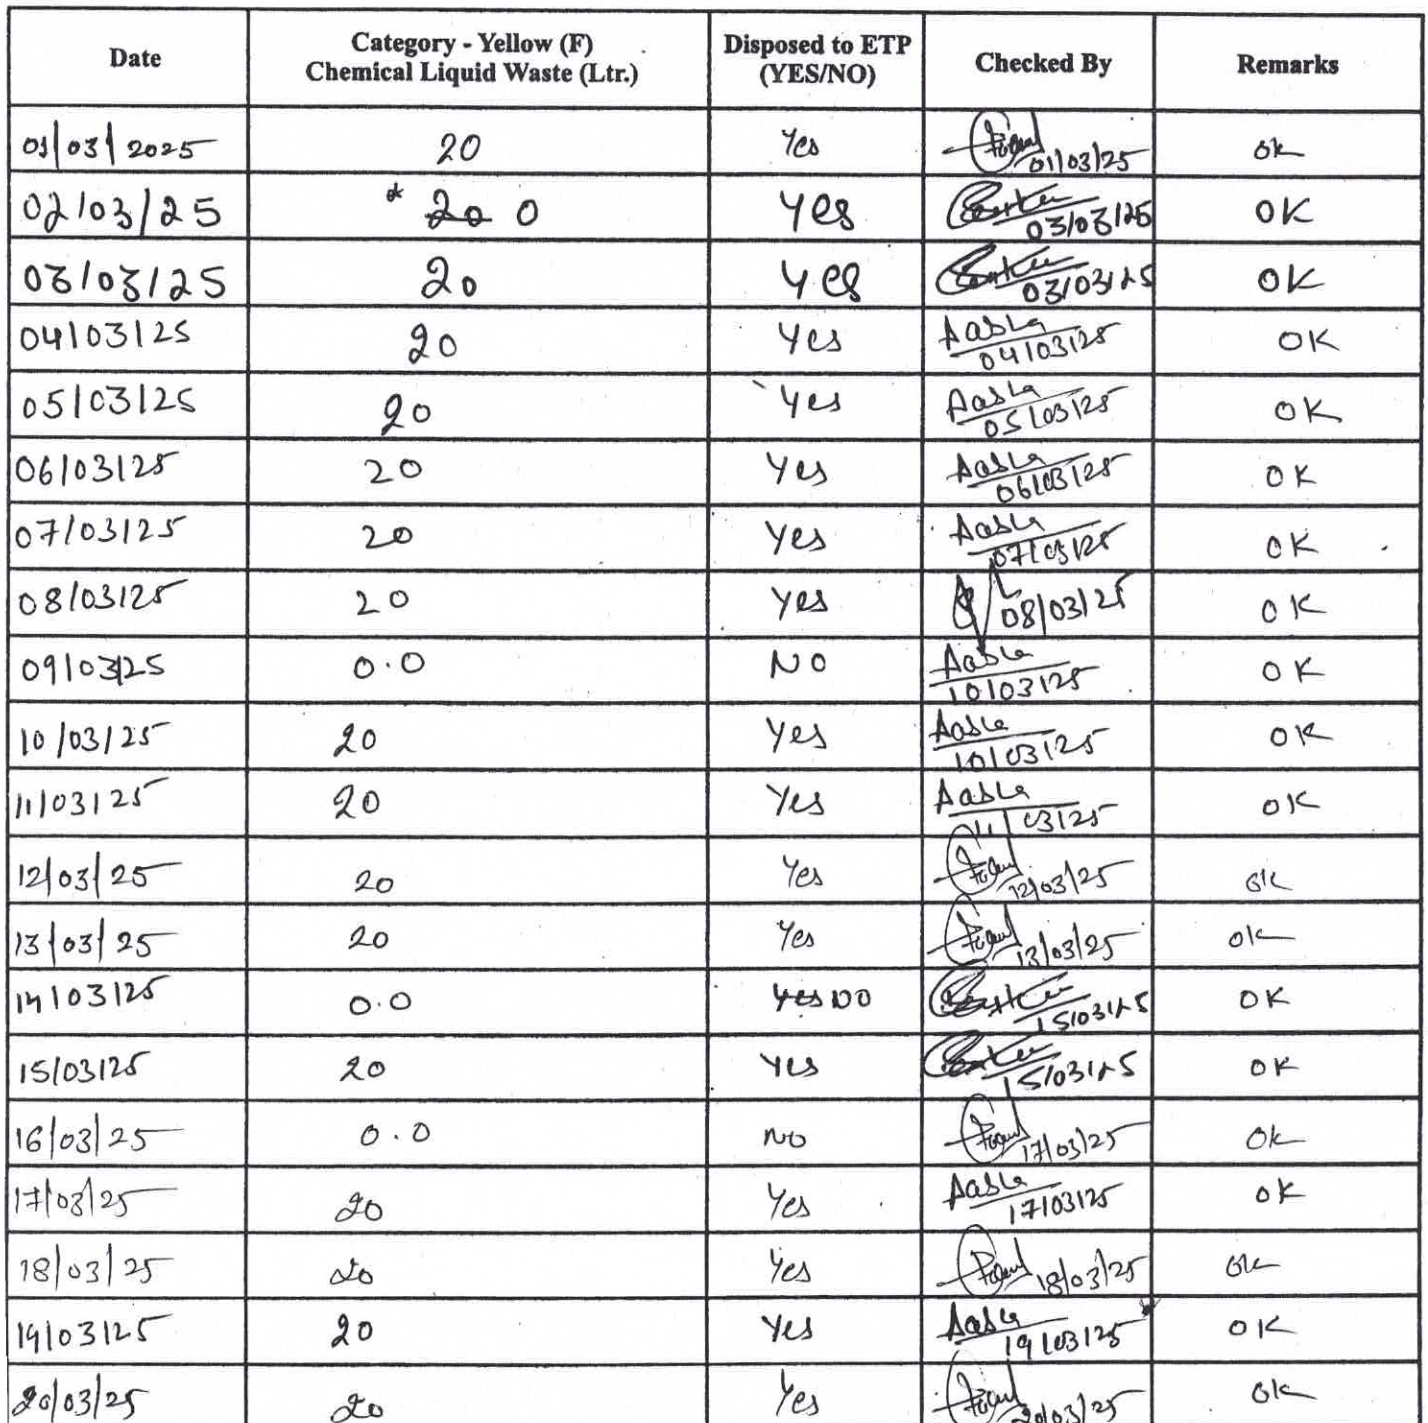 Date Category - Yellow (F) Chemical Liquid Waste (Ltr.) Disposed to ETP (YES/NO) Checked By Remarks
01/03/2025 20 Yes 01/03/25 ok
02/03/25 * 20 0 Yes 03/03/25 OK
03/03/25 20 Yes 03/03/25 OK
04/03/25 20 Yes 04/03/25 OK
05/03/25 20 Yes 05/03/25 OK
06/03/25 20 Yes 06/03/25 OK
07/03/25 20 Yes 07/03/25 OK
08/03/25 20 Yes 08/03/25 OK
09/03/25 0.0 NO 10/03/25 OK
10/03/25 20 Yes 10/03/25 OK
11/03/25 20 Yes 11/03/25 OK
12/03/25 20 Yes 12/03/25 ok
13/03/25 20 Yes 13/03/25 ok
14/03/25 0.0 Yes NO 15/03/25 OK
15/03/25 20 Yes 15/03/25 OK
16/03/25 0.0 NO 17/03/25 Ok
17/03/25 20 Yes 17/03/25 OK
18/03/25 20 Yes 18/03/25 ok
19/03/25 20 Yes 19/03/25 OK
20/03/25 20 Yes 20/03/25 ok